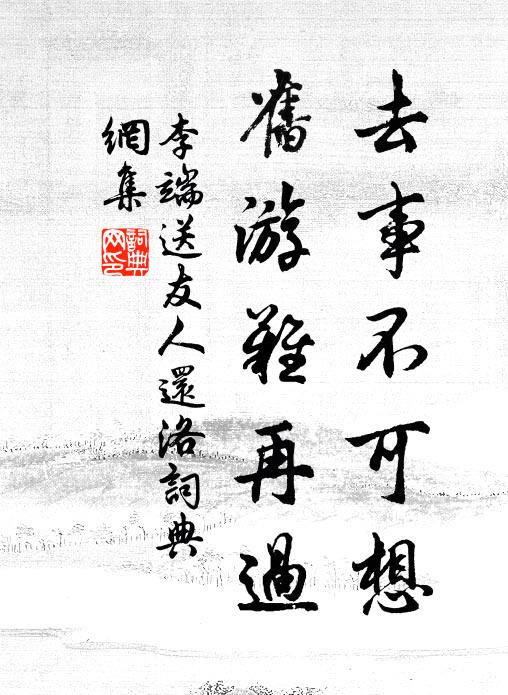 去事不可想
舊游難再過
李端送友人還洛詞典
網集
詞典
网印